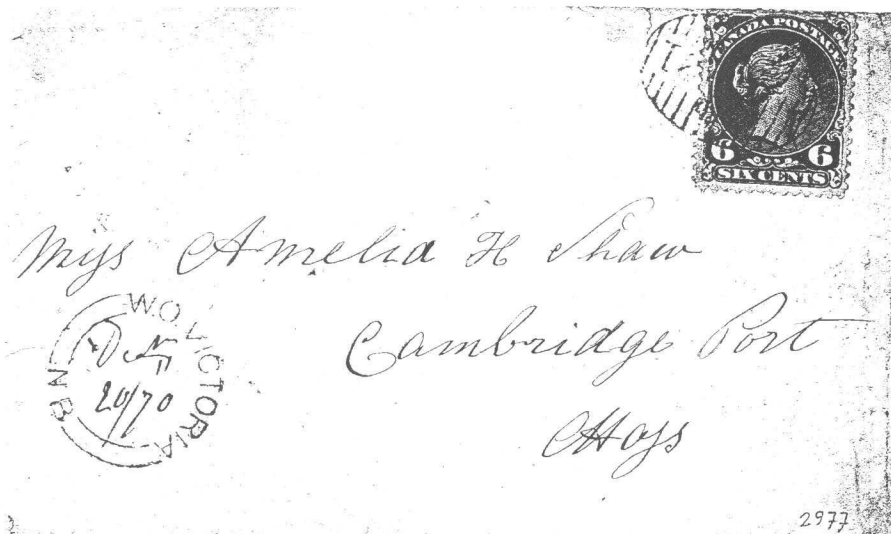 CANADA POSTAGE
6 6
SIX CENTS
Miss Amelia H Shaw
Cambridge Port
Mass
W.O. VICTORIA
N B
20/70
2977